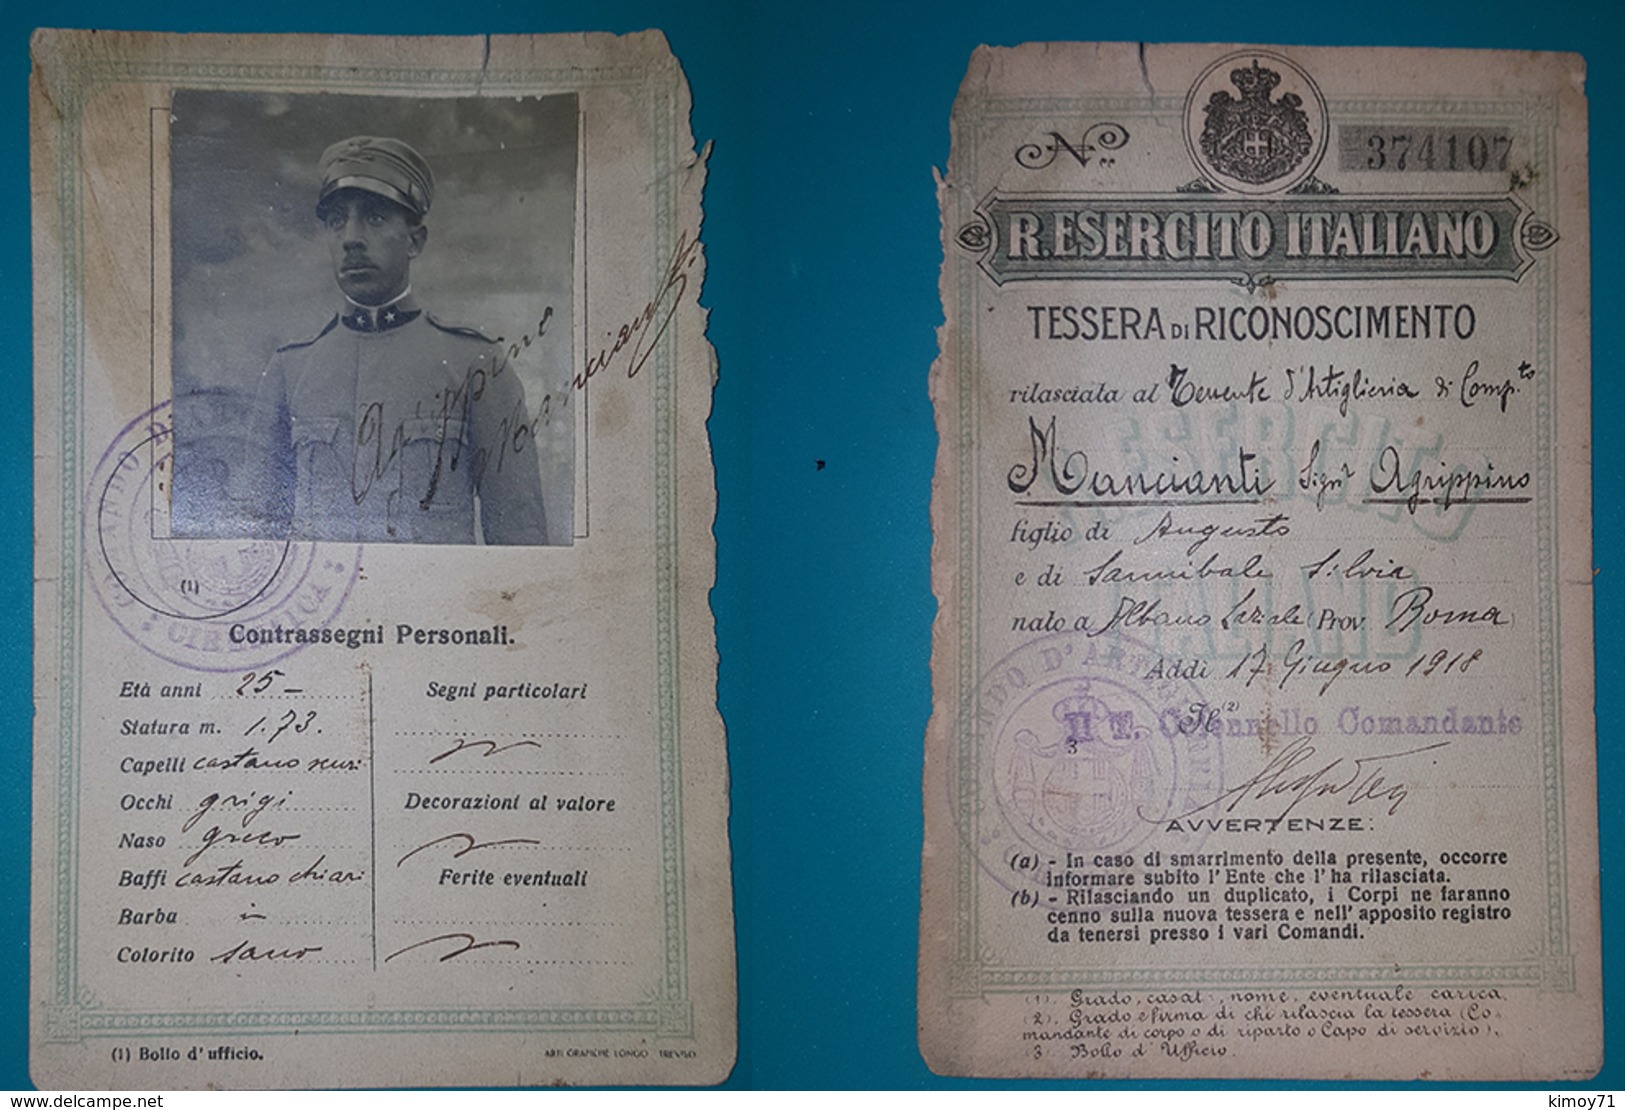 Agrippino
Mancianti
COMANDO D'ART
CIRENAICA
(1)
Contrassegni Personali.
Età anni 25 -
Statura m. 1.73.
Capelli castano scuri
Occhi grigi
Naso greco
Baffi castano chiari
Barba
Colorito sano
Segni particolari
Decorazioni al valore
Ferite eventuali
(1) Bollo d' ufficio.
ARTI GRAFICHE LONGO TREVISO
No. 374107
R. ESERCITO ITALIANO
TESSERA DI RICONOSCIMENTO
rilasciata al Tenente d'Artiglieria di Comp.to
Mancianti Sign.r Agrippino
figlio di Augusto
e di Sannibale Silvia
nato a Albano Laziale (Prov. Roma)
Addì 17 Giugno 1918
Il (2)
IL T. Colonnello Comandante
3
AVVERTENZE:
(a) - In caso di smarrimento della presente, occorre
informare subito l' Ente che l' ha rilasciata.
(b) - Rilasciando un duplicato, i Corpi ne faranno
cenno sulla nuova tessera e nell' apposito registro
da tenersi presso i vari Comandi.
(1). Grado, casat., nome, eventuale carica
(2). Grado e firma di chi rilascia la tessera (Co-
mandante di corpo o di riparto o Capo di servizio).
(3 Bollo d' Ufficio.
www.delcampe.net
kimoy71